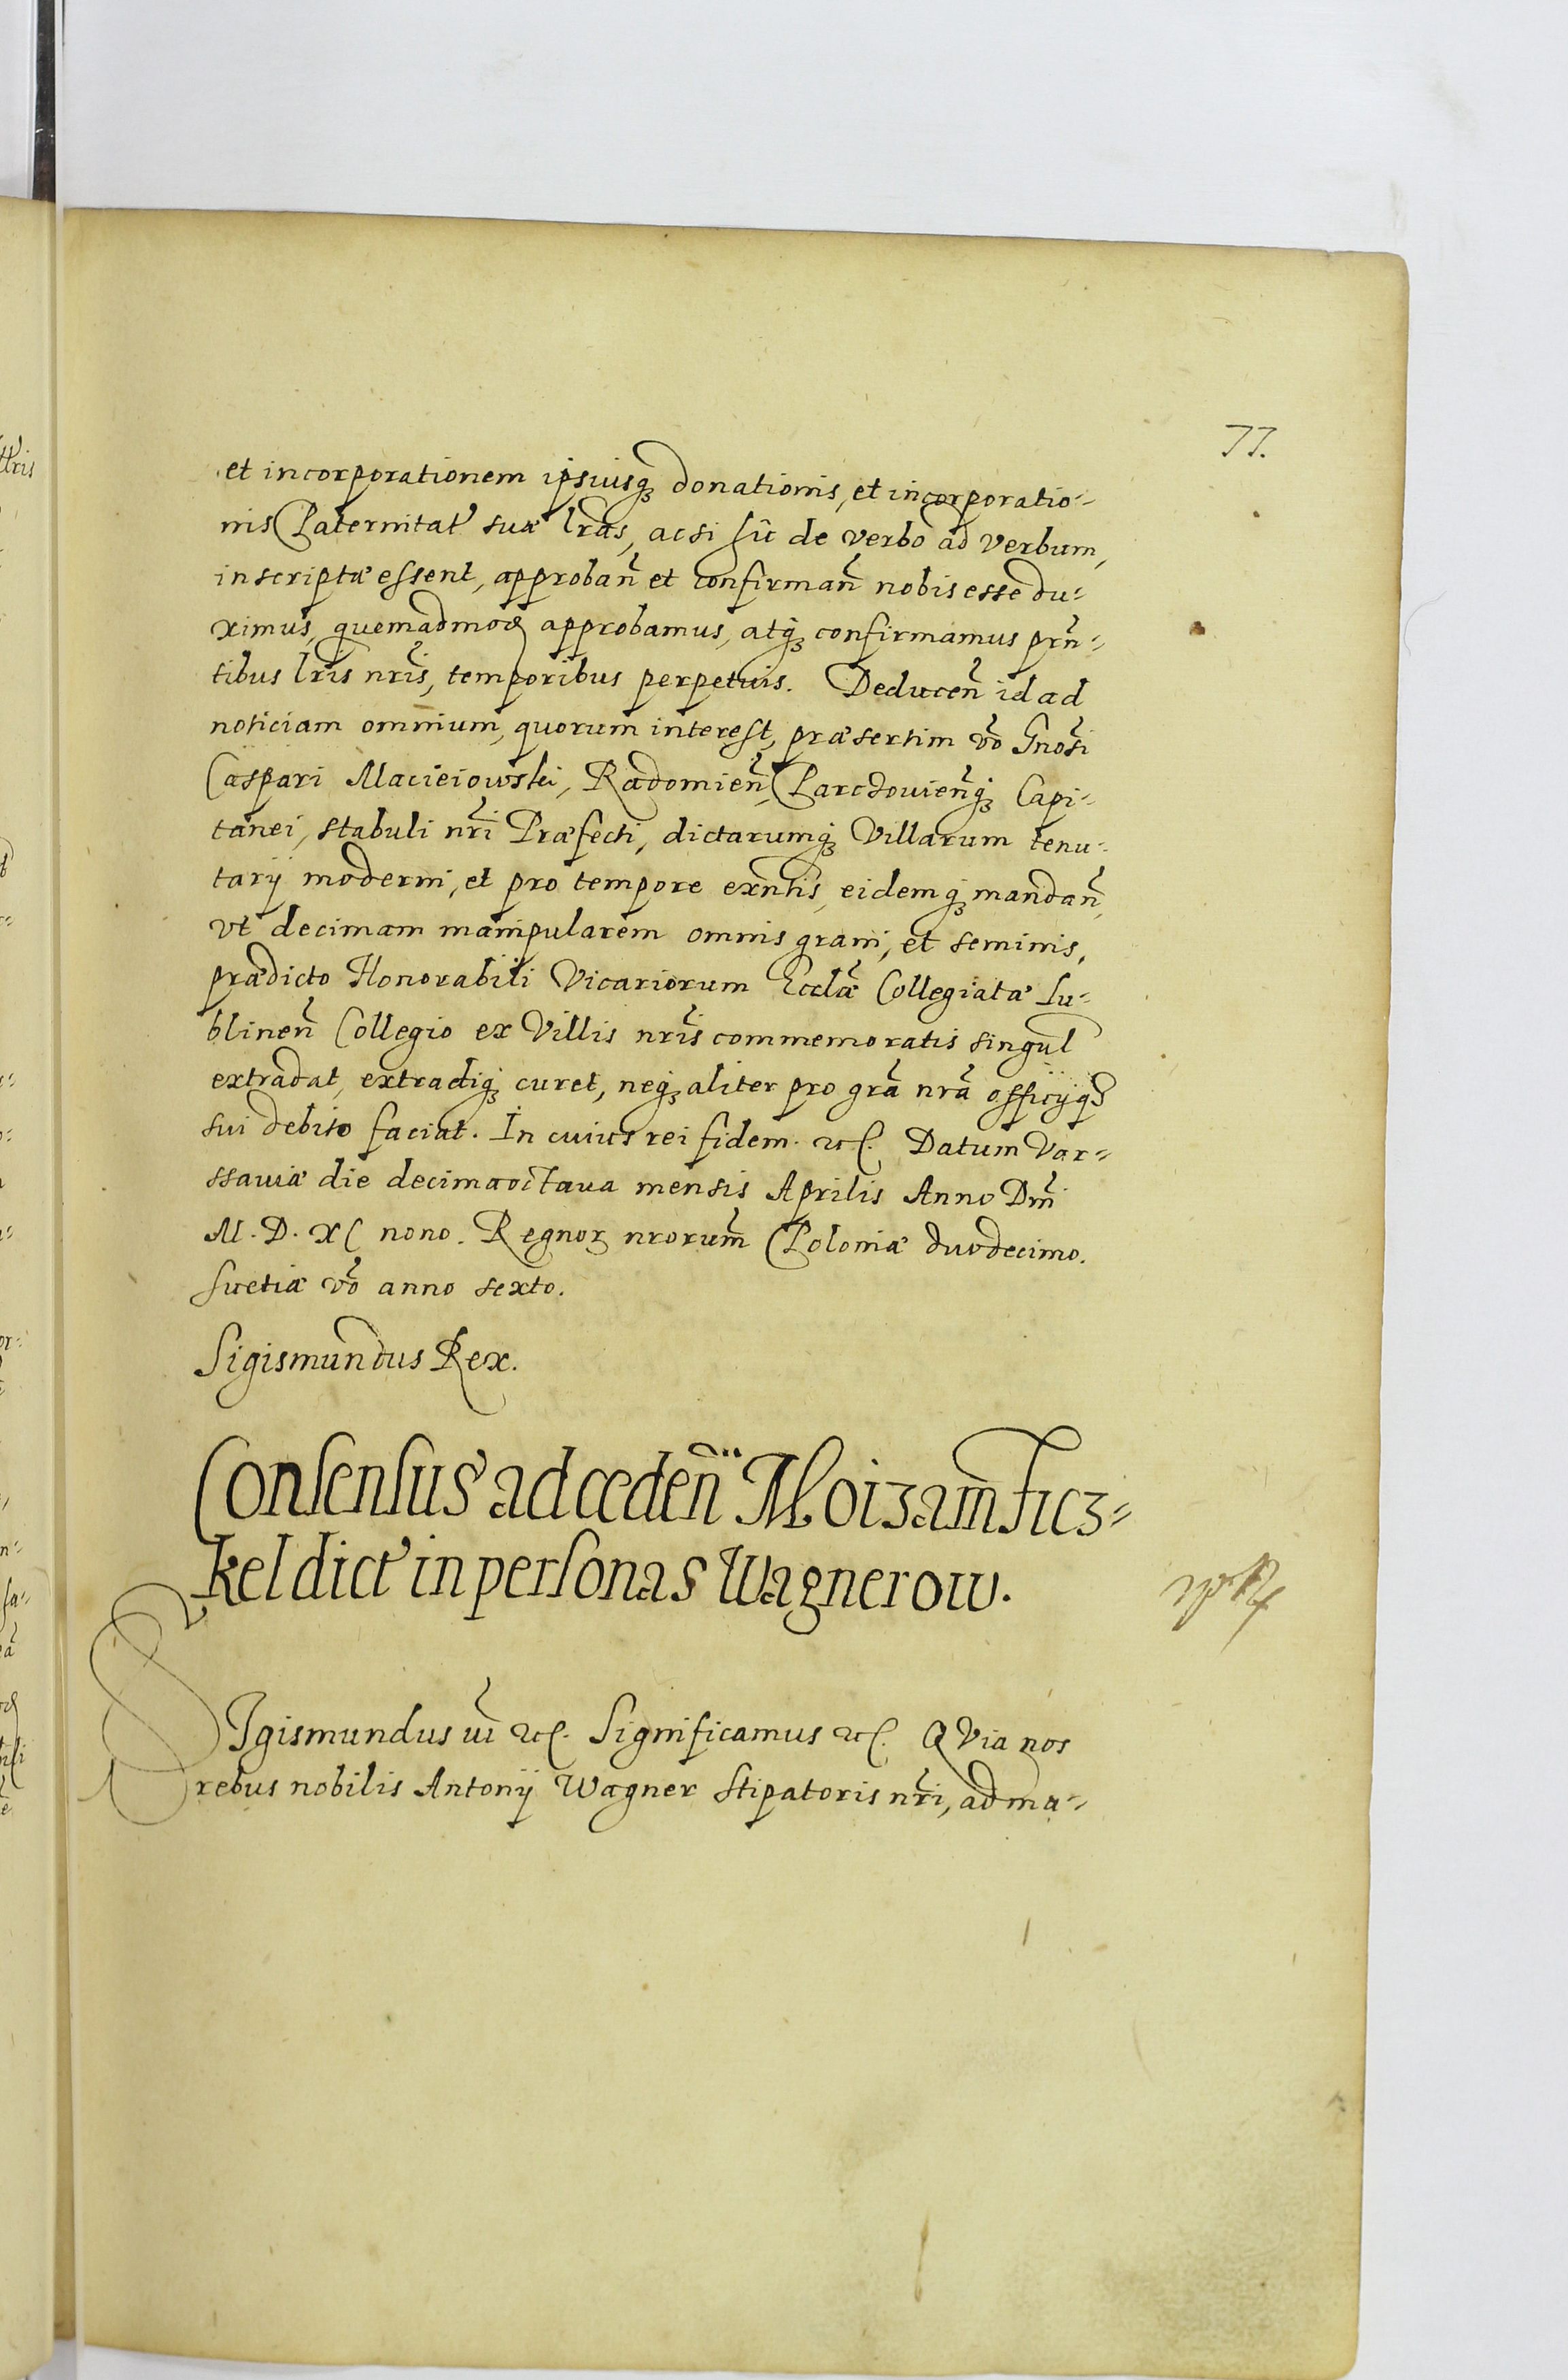 77.
et incorporationem ipsiusq₃ donationis, et incorporatio-
nis Paternitat' suæ lr̃as, ac si hîc de verbo ad verbum,
inscriptæ essent, approban̄ et confirman̄ nobis esse du-
ximus, quemadmod approbamus, atq₃ confirmamus prn̄-
tibus lr̃is nr̃is, temporibus perpetuis. Deducen̄ id ad
noticiam omnium, quorum interest, præsertim vō Gnosi
Caspari Macieiowski, Radomien̄, Parczouien̄q₃ Capi-
tanei, stabuli nr̃i Præfecti, dictarumq₃ Villarum tenu-
tarij moderni, et pro tempore exn̄tis, eidemq₃ mandan̄,
vt decimam manipularem omnis grani, et seminis,
prædicto Honorabili Vicariorum Ecclæ̃ Collegiatæ Lu-
blinen̄ Collegio ex Villis nr̃is commemoratis singul
extradat, extradiq₃ curet, neq₃ aliter pro grā nrā officijq₃
sui debito faciat. In cuius rei fidem. etc. Datum Var-
ssauiæ die decimaoctaua mensis Aprilis Anno Dnī
M. D. XC nono. Regnoꝝ nrorum̄ Poloniæ duodecimo.
Suetiæ vō anno sexto.
Sigismundus Rex.
Consensus ad ceden̄ Moizam Ficz-
kel dict' in personas Wagnerow.
SIgismundus iii etc. Significamus etc. QVia nos
rebus nobilis Antonij Wagner Stipatoris nr̃i, ad ma-